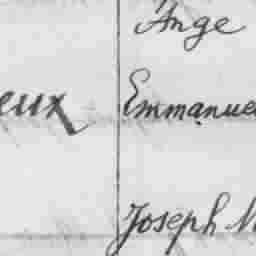 Ange
eux Emmanuel
Joseph M